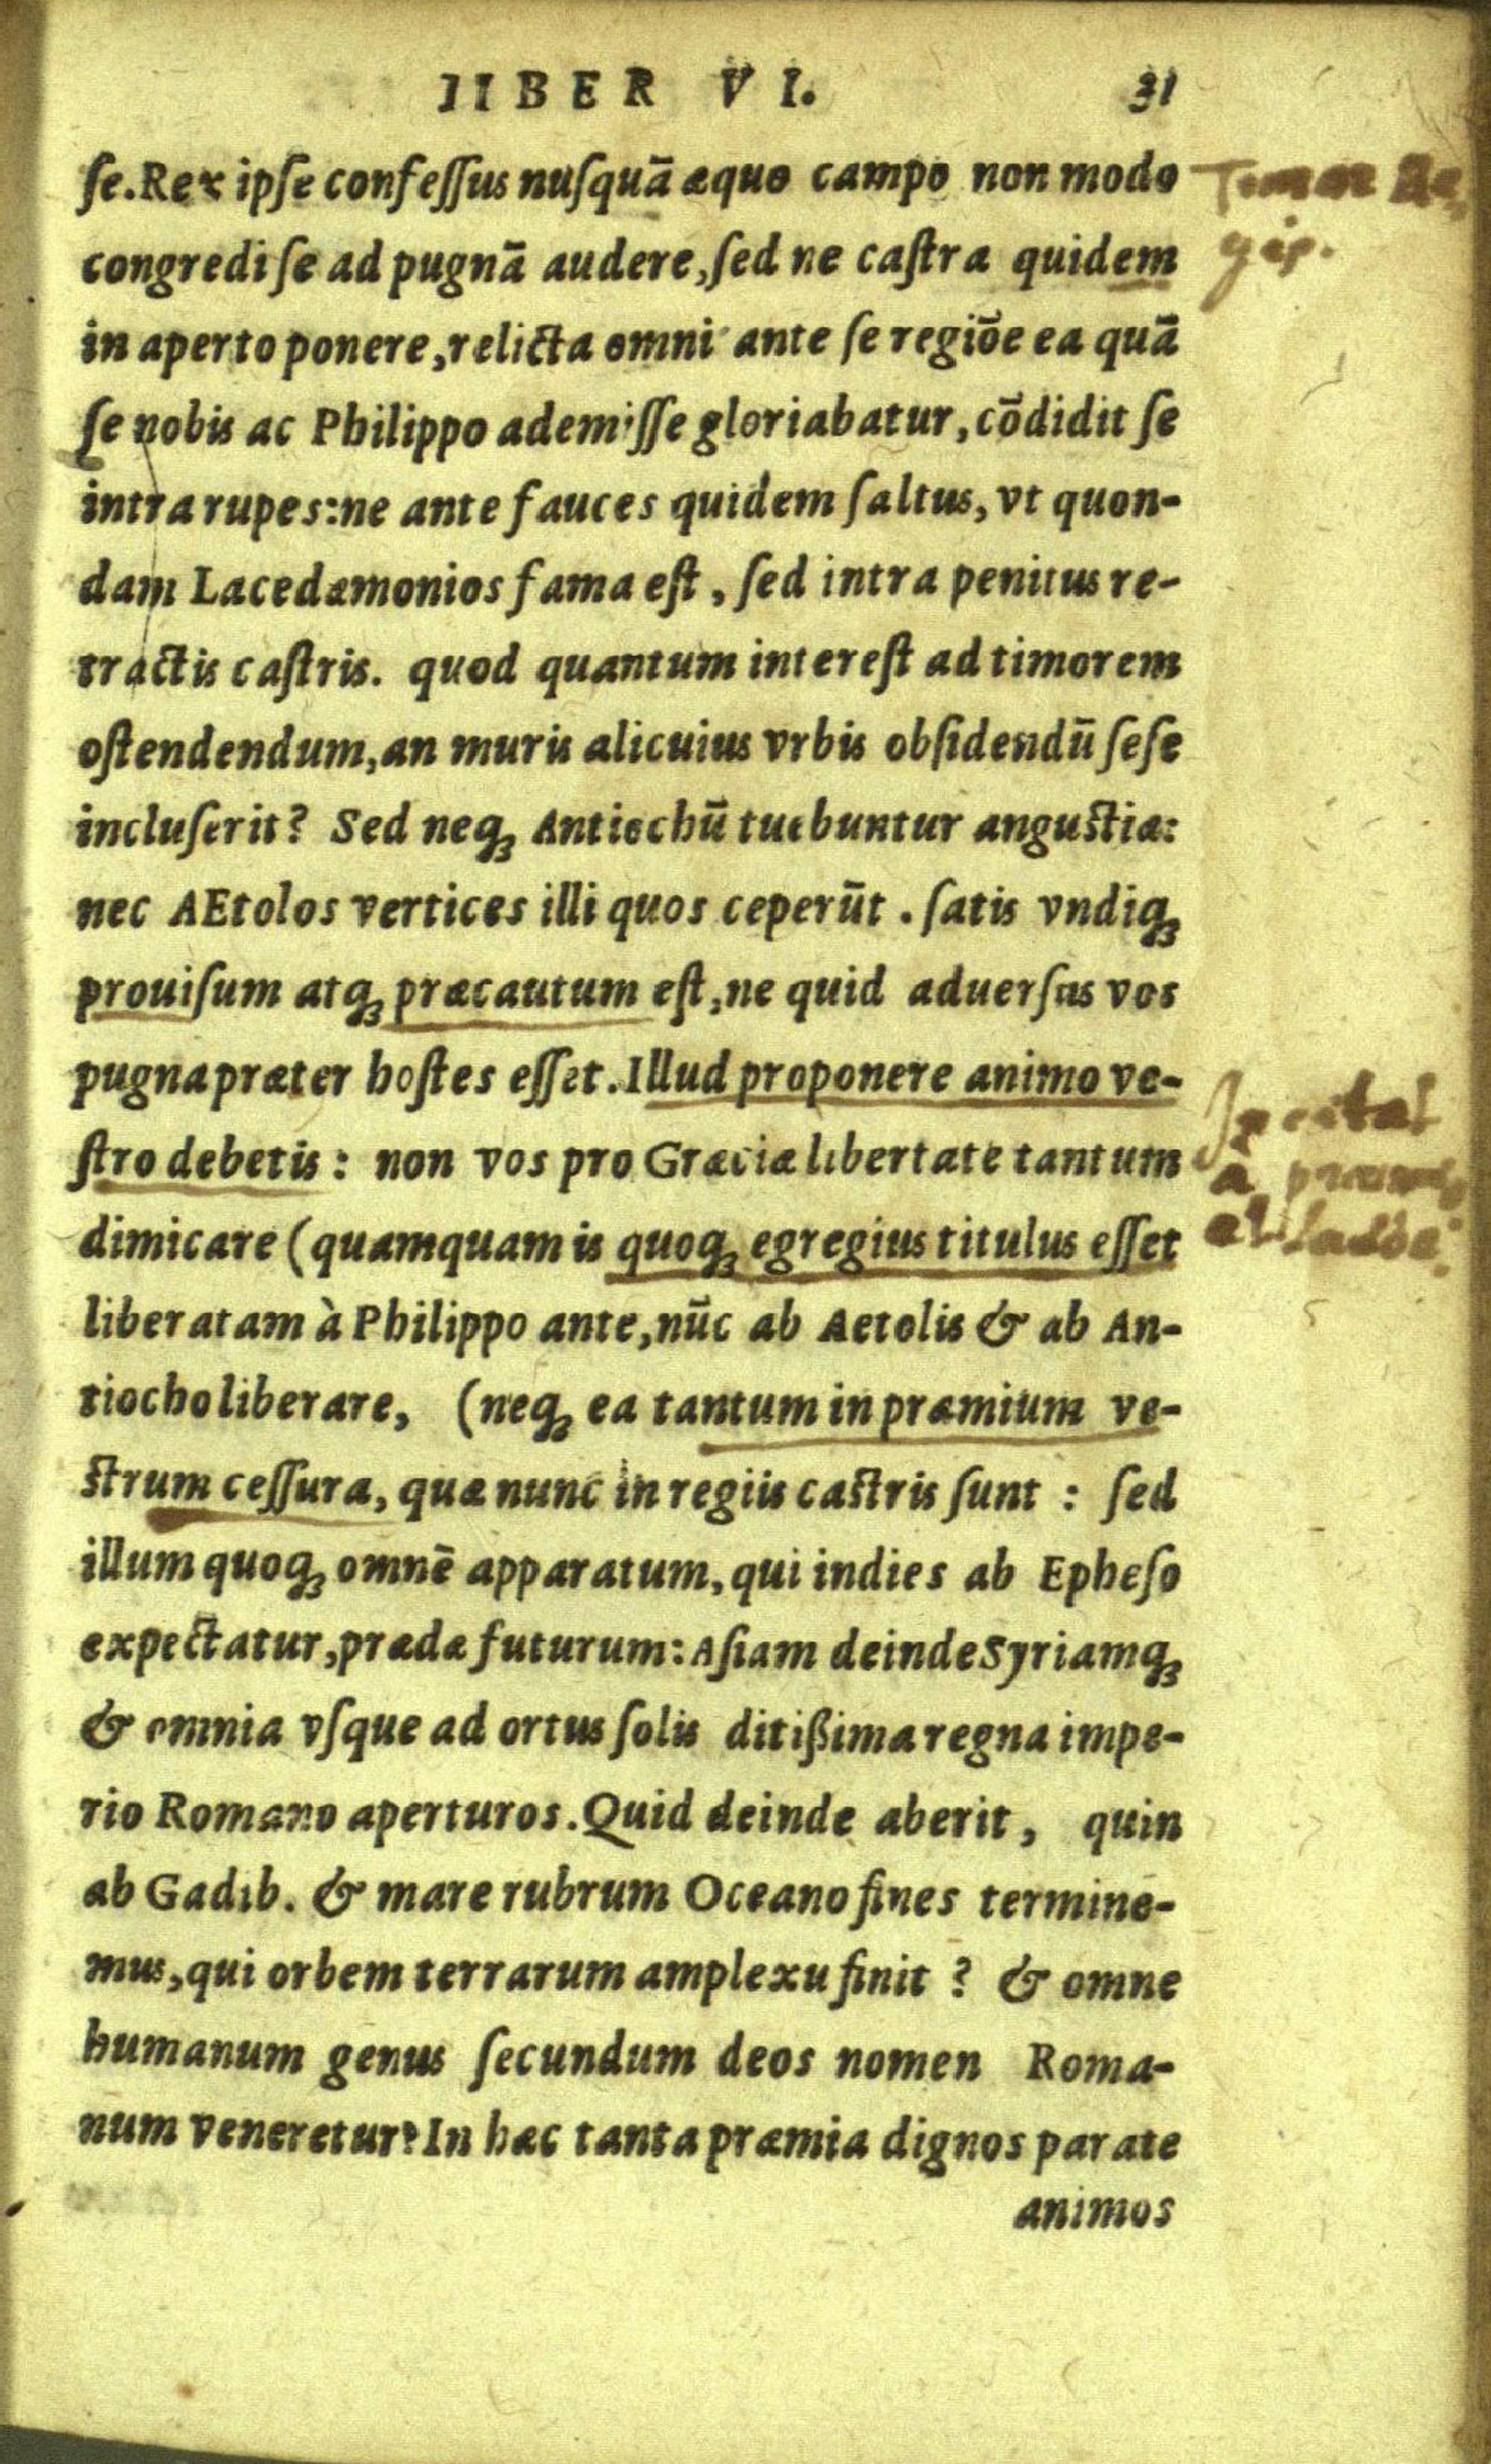 IIBER VI. 31
ſe. Rex ipſe confeſſus nuſquã æquo campo non modo
Timor Re-
congredi ſe ad pugnã audere, ſed ne caſtra quidem
gis.
in aperto ponere, relicta omni ante ſe regiõe ea quã
ſe nobis ac Philippo ademiſſe gloriabatur, cõdidit ſe
intra rupes: ne ante fauces quidem ſaltus, vt quon-
dam Lacedæmonios fama eſt, ſed intra penitus re-
tractis caſtris. quod quantum intereſt ad timorem
oſtendendum, an muris alicuius vrbis obſidendũ ſeſe
incluſerit? Sed neq; Antiochũ tuebuntur anguſtiæ:
nec AEtolos vertices illi quos ceperũt. ſatis vndiq;
prouiſum atq; præcautum eſt, ne quid aduerſus vos
pugna præter hoſtes eſſet. Illud proponere animo ve-
ſtro debetis: non vos pro Græciæ libertate tantum
a
dimicare (quamquam is quoq; egregius titulus eſſet
et laude.
liberatam à Philippo ante, nũc ab Aetolis & ab An-
tiocho liberare, (neq; ea tantum in præmium ve-
ſtrum ceſſura, quæ nunc in regiis caſtris ſunt : ſed
illum quoq; omnẽ apparatum, qui indies ab Epheſo
expectatur, prædæ futurum: Aſiam deinde Syriamq;
& omnia vſque ad ortus ſolis ditißima regna impe-
rio Romano aperturos. Quid deinde aberit, quin
ab Gadib. & mare rubrum Oceano fines termine-
mus, qui orbem terrarum amplexu finit ? & omne
humanum genus ſecundum deos nomen Roma-
num veneretur? In hæc tanta præmia dignos parate
animos